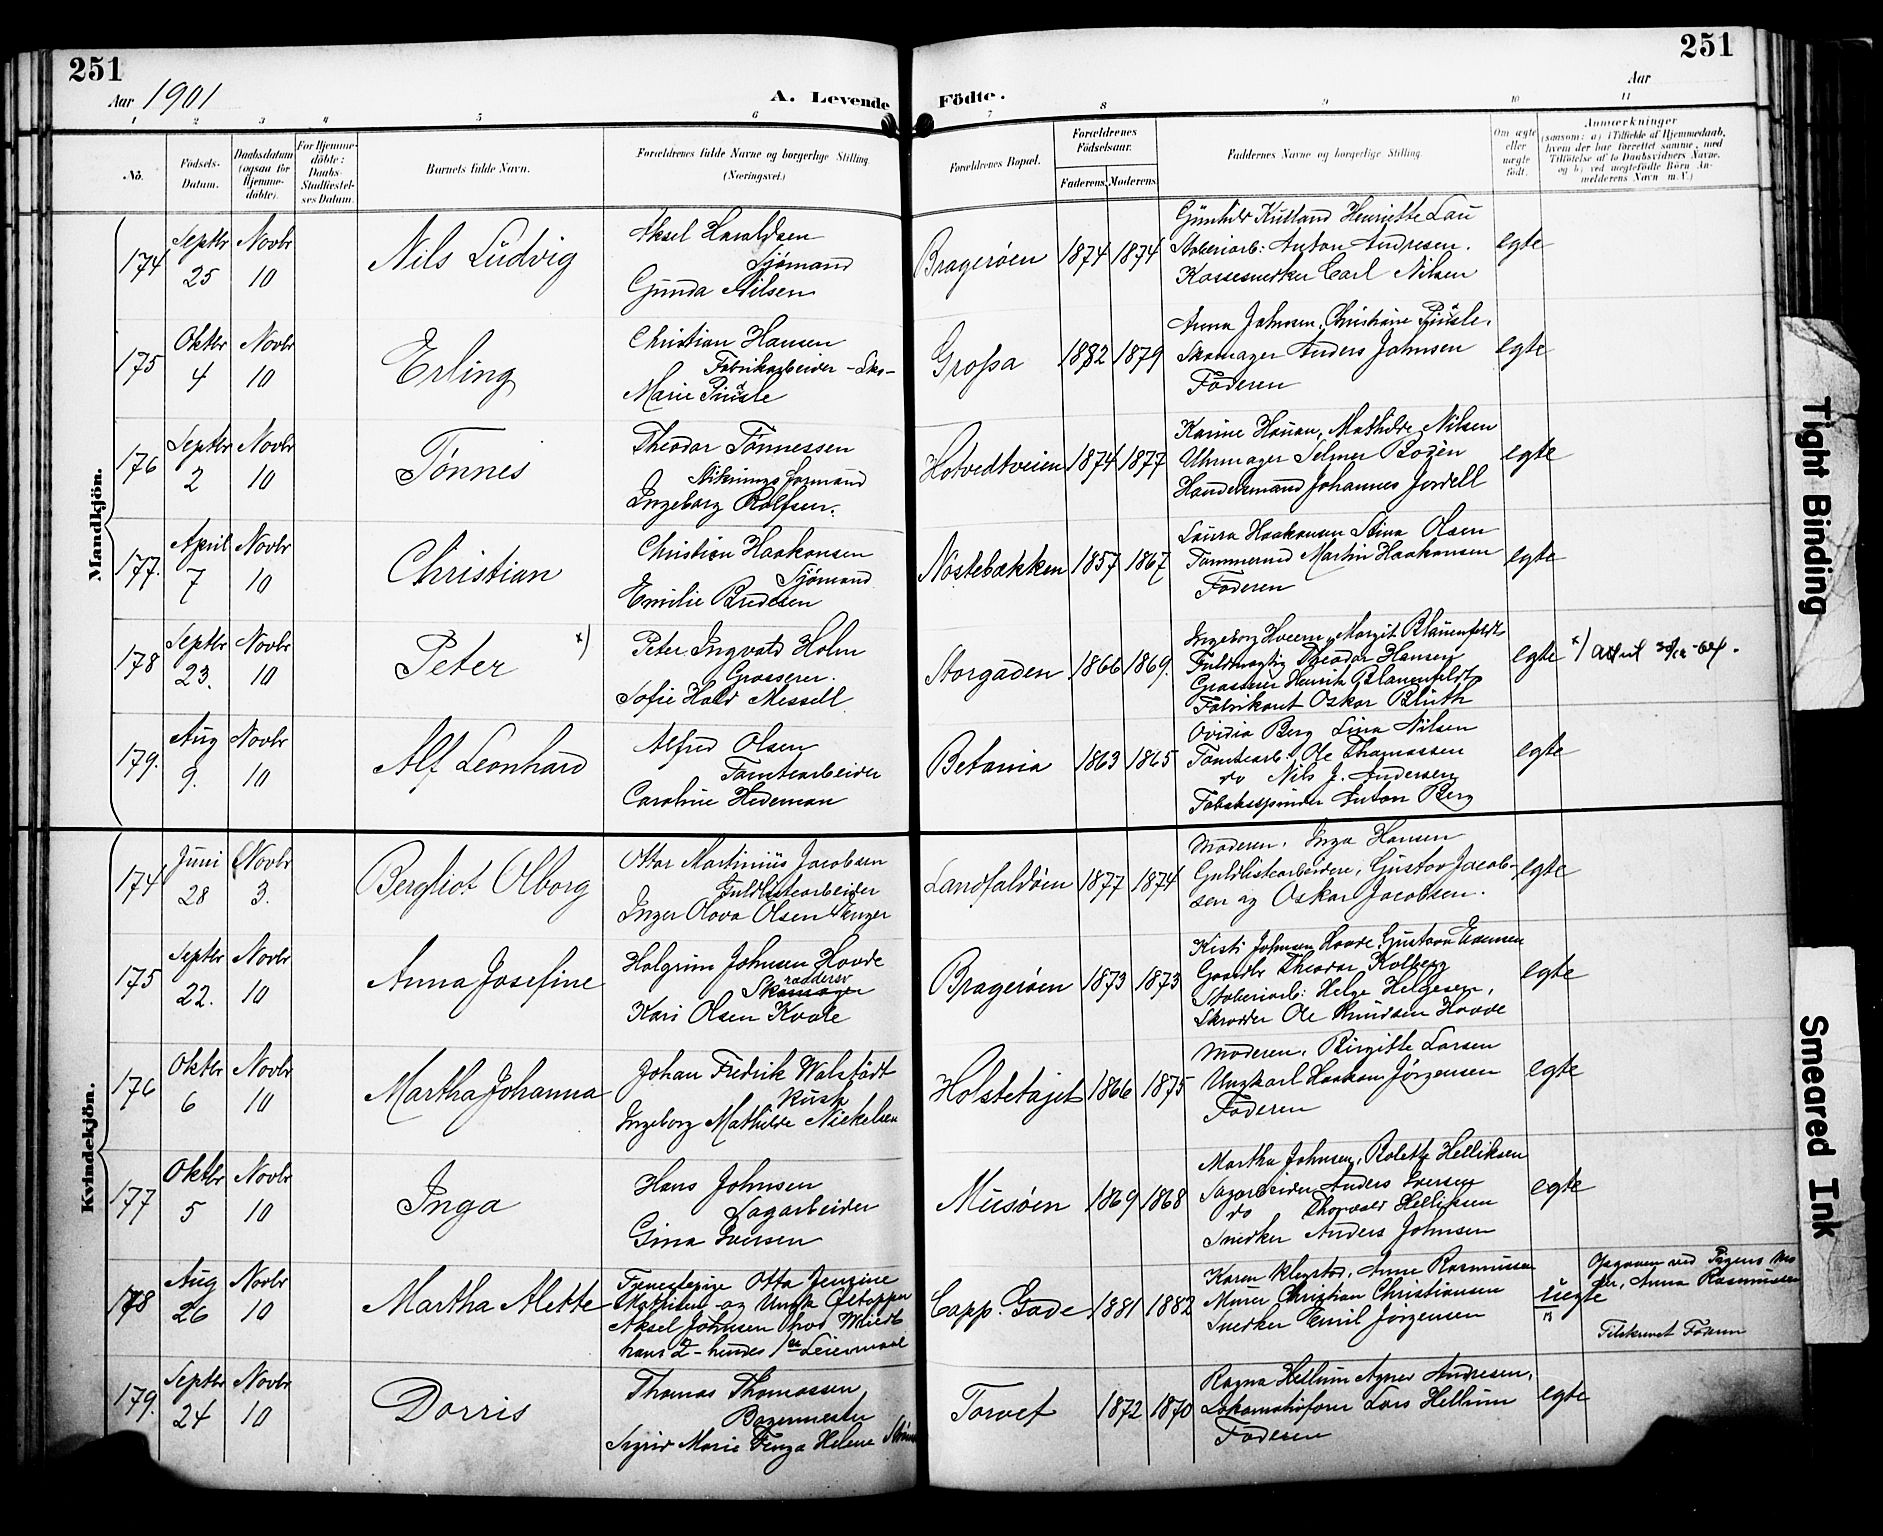 251
251
Aar 1901
A. Levende
Födte.
Aar
1 2 3 4 5 6 7 8 9 10 11
No.
Födsels-
Datum.
Daabsdatum
(ogsaa for
Hjemme-
döbte).
For Hjemme-
döbte:
Daabs-
Stadfæstel-
ses Datum.
Barnets fulde Navn.
Forældrenes fulde Navne og borgerlige Stilling
(Næringsvei.)
Forældrenes Bopæl.
Forældrenes
Födselsaar.
Faderens. Moderens.
Faddernes Navne og borgerlige Stilling.
Om ægte
eller
uægte
födt.
Anmærkninger
(saasom: a) i Tilfælde af Hjemmedaab,
hvem der har forrettet samme, med
Tilföielse af to Daabsvidners Navne,
og b) ved uægtefödte Börn An-
melderens Navn m. V.)
Mandkjön.
174 Septbr 25 Novbr 10
Nils Ludvig
Aksel Haraldsen
Sjømand
Gunda Nilsen
Bragerøen 1874 1874
Gunhild Henriette Lau
Anton Andresen.
Carl Nilsen
egte
175 Oktbr 4 Novbr 10
Erling
Christian Hansen
Fabrikarbeider
Marie
Grossa 1882 1879
Anna Johnsen, Christiane
Skomager Anders Johnsen
Faderen
egte
176 Septbr 2 Novbr 10
Tønnes
Theodor Tønnessen
Ingeborg Rolfsen.
Hotvedtveien 1874 1877
Karine Hauan, Mathilde Nilsen
Uhrmager Selmer
Handelsmand Johannes Jordell
egte
177. April 7 Novbr 10
Christian
Christian Haakonsen
Sjømand
Emilie Bredesen
Nøstebækken 1857 1867
Laura Haakonsen Stina Olsen
Tømmermd Martin Haakonsen
Faderen
egte
178 Septbr 23. Novbr 10
Peter x)
Peter Ingvald Holm
Grosserer.
Sofie Hald Messell
Storgaden 1866 1869.
Ingeborg Hveem, Margit Blauenfeldt
Fuldmægtig Theodor Hansen
Grosserer Henrik Blauenfeldt
Fabrikant Oskar Blüth
egte x) Attest
179. Aug 9. Novbr 10
Alf Leonhard
Alfred Olsen
Tomtearbeider
Caroline Hedeman
Betania 1863 1865
Ovidia Berg Lina Nilsen
Tomtearb: Ole Thomassen
do Nils J. Andersen
Tobaksspinder Anton Berg
egte
Kvindekjön.
174 Juni 28 Novbr 3.
Bergliot Olborg
Ottar Martinius Jacobsen
Guldlistearbeider
Inger Olava Olsen
Landfaldøen 1877 1874
Moderen, Inga Hansen
Guldlistearbeidere, Gustav Jacob-
sen og Oskar Jacobsen.
egte
175 Septbr 22. Novbr 10
Anna Josefine
Halgrim Johnsen Hovde
Skomager
Kari Olsen Kvale
Bragerøen 1873 1873
Kisti Johnsen Hovde, Gustava Evensen
Theodor Kolberg
Helge Helgesen,
Skrædder Ole Knudsen Hovde
egte
176 Oktbr 6 Novbr 10
Martha Johanna
Johan Fredrik Walstadt
Kusk
Ingeborg Mathilde Nickelsen
1866 1875
Moderen, Birgitte Larsen
Ungkarl Haakon Jørgensen
Faderen
egte
177 Oktbr 5 Novbr 10
Inga
Hans Johnsen
Sagarbeider
Gina Iversen
Musøen 1869 1868
Martha Johnsen, Rolette Helliksen
Sagarbeider Anders Iversen
do Thorvald Helliksen
Snedker Anders Johnsen
egte
178 Aug 26 Novbr 10
Martha Alette
Tjenestepige Otta Jensine
og Ungk Øltapper
Aksel Johnsen
hans 2 - hendes 1ste Leiermaal
Capp. Gade 1881 1882
Karen Anne Rasmussen
Murer Christian Christiansen
Snedker Emil Jørgensen
uegte
Opgaven ved Pigens Mo
der, Anna Rasmussen
Tilskrevet Faderen
179. Septbr 24 Novbr 10
Dorris
Thomas Thomassen
Bagermester
Sigrid Marie Helene
Torvet 1872 1870
Ragna Hellum Agnes Andresen,
Lokomotivfører Lars Hellum
Faderen
egte
Tight Binding
Smeared Ink